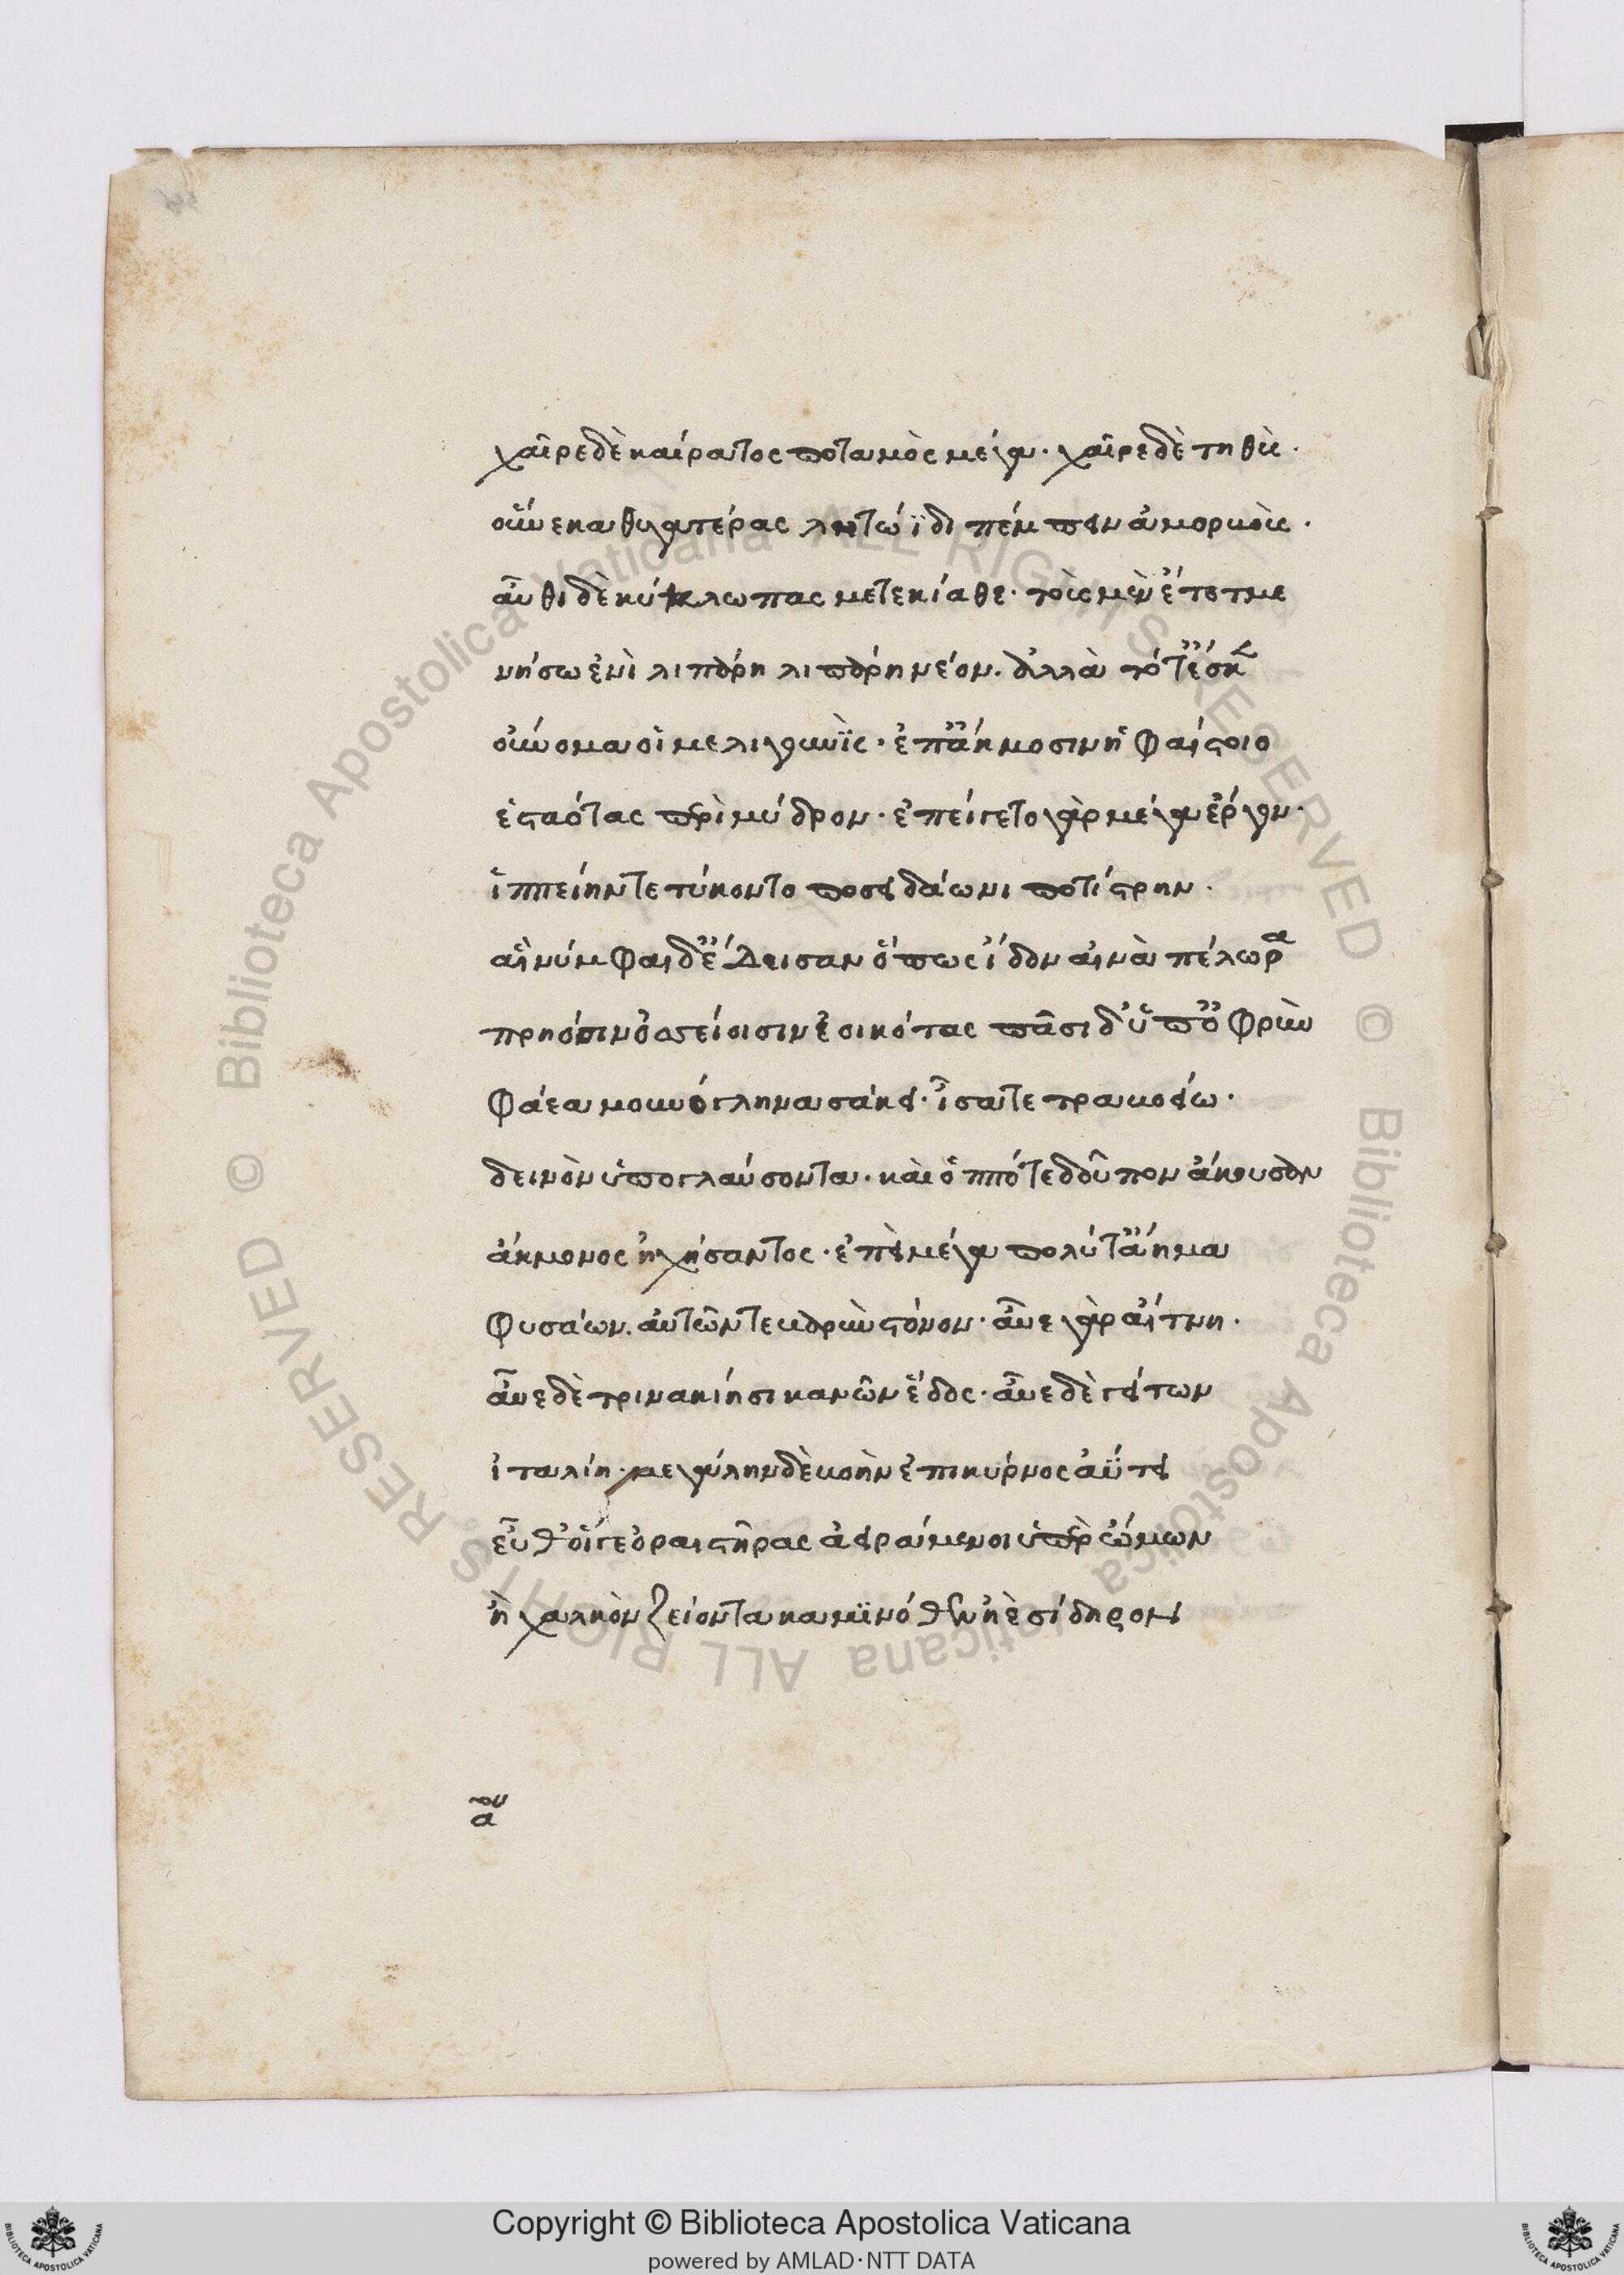 χαῖρε δὲ καίρατος ποταμὸς μέγα· χαῖρε δὲ τηθὺς·
οὕνεκα θυγατέρας λητωΐδι πέμπεν ἀμορβοὺς·
αὖθι δὲ κύκλωπας μετεκίαθε· τοὺς μὲν ἔτετμε
νήσω ἐνὶ λιπάρη λιπάρη νέον. ἀλλὰ τότ' ἔσκεν
οὔνομα οἱ μελιγουνὶς· ἐπ' ἄκμοσιν ἡφαίστοιο
ἑσταότας περὶ μύδρον· ἐπείγετο γὰρ μέγα ἔργον·
ἱππείην τετύκοντο ποσειδάωνι ποτίστρην·
αἱ νύμφαι δ' ἔδδεισαν ὅπως ἴδον αἰνὰ πέλωρα
πρηόσιν ὀσσείοισιν ἐοικότας πᾶσι δ' ὑπ' ὀφρὺν
φάεα μουνόγληνα σάκει· ἶσα τετραβοείω·
δεινὸν ὑπογλαύσοντα· καὶ ὁππότε δοῦπον ἄκουσαν
ἄκμονος ἠχήσαντος· ἐπεὶ μέγα πολύ τ' ἄημα
φυσάων. αὐτῶν τε βαρὺν στόνον· αὖε γὰρ αἴτνη·
αὖε δὲ τρινακίη σικανῶν ἕδος· αὖε δὲ γείτων
ἰταλίη· μεγάλην δὲ βοὴν ἐπὶ κύρνος ἀΰτει
εὖθ' οἵγε ὁραιστῆρας ἀειράμενοι ὑπὲρ ὤμων
ἢ χαλκὸν ζείοντα καμινόθεν ἠὲ σίδηρον
αου
Copyright © Biblioteca Apostolica Vaticana
powered by AMLAD·NTT DATA
© Biblioteca Apostolica Vaticana ALL RIGHTS RESERVED © Biblioteca Apostolica Vaticana ALL RIGHTS RESERVED